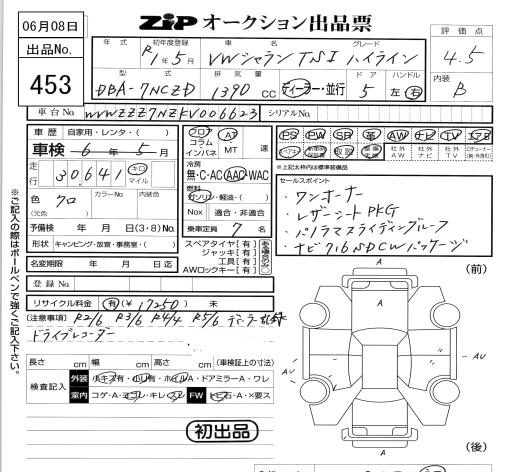 06月08日
出品No.
453
ZiP オークション出品票
年式 初年度登録 車名 グレード
R1年5月 VWシャラン TSI ハイライン
型式 排気量 ドア ハンドル
DBA-7NCZD 1390 CC ディーラー・並行 5 左 右
評価点
4.5
内装
B
車台No. WVWZZZ7NZKV006623 シリアルNo.
車歴 自家用・レンタ・( )
車検 6年5月
走行 30,641 キロ マイル
色 クロ カラーNo. 内装色
(元色)
予備検 年 月 日(3・8)No.
形状 キャンピング・放送・事務室・( )
名変期限 年 月 日迄
フロア コラム インパネ AT MT 速
冷房
無・C・AC AAC・WAC
燃料
ガソリン・軽油・( )
Nox 適合・非適合
乗車定員 7 名
スペアタイヤ[有]
ジャッキ[有]
工具[有]
AWロックキー[有]
PS PW SR 革 AW ナビ TV エアB
社外AW 社外ナビ 社外TV
※上記太枠内は標準装備品
セールスポイント
・ワンオーナー
・レザーシートPKG
・パノラマスライディングルーフ
・ナビ716SDCWパッケージ
登録No.
リサイクル料金 有(¥ 17250) 未
(注意事項) R2/6 R3/6 R4/4 R5/6 ディーラー記録
ドライブレコーダー
長さ cm 幅 cm 高さ cm (車検証上の寸法)
検査記入 外装 小キズ有・小凹有・ホイルA・ドアミラーA・ワレ
室内 コゲ・A・ヨゴレ・キレ・スレ FW トビ石・A・×要ス
初出品
※ご記入の際はボールペンで強くご記入下さい。
(前)
A
A
AU
AU
A
(後)